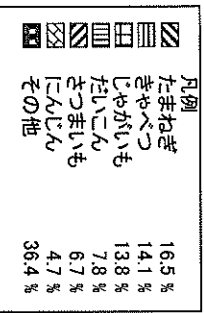 凡例
たまねぎ 16.5 %
きゃべつ 14.1 %
じゃがいも 13.8 %
だいこん 7.8 %
さつまいも 6.7 %
にんじん 4.7 %
その他 36.4 %